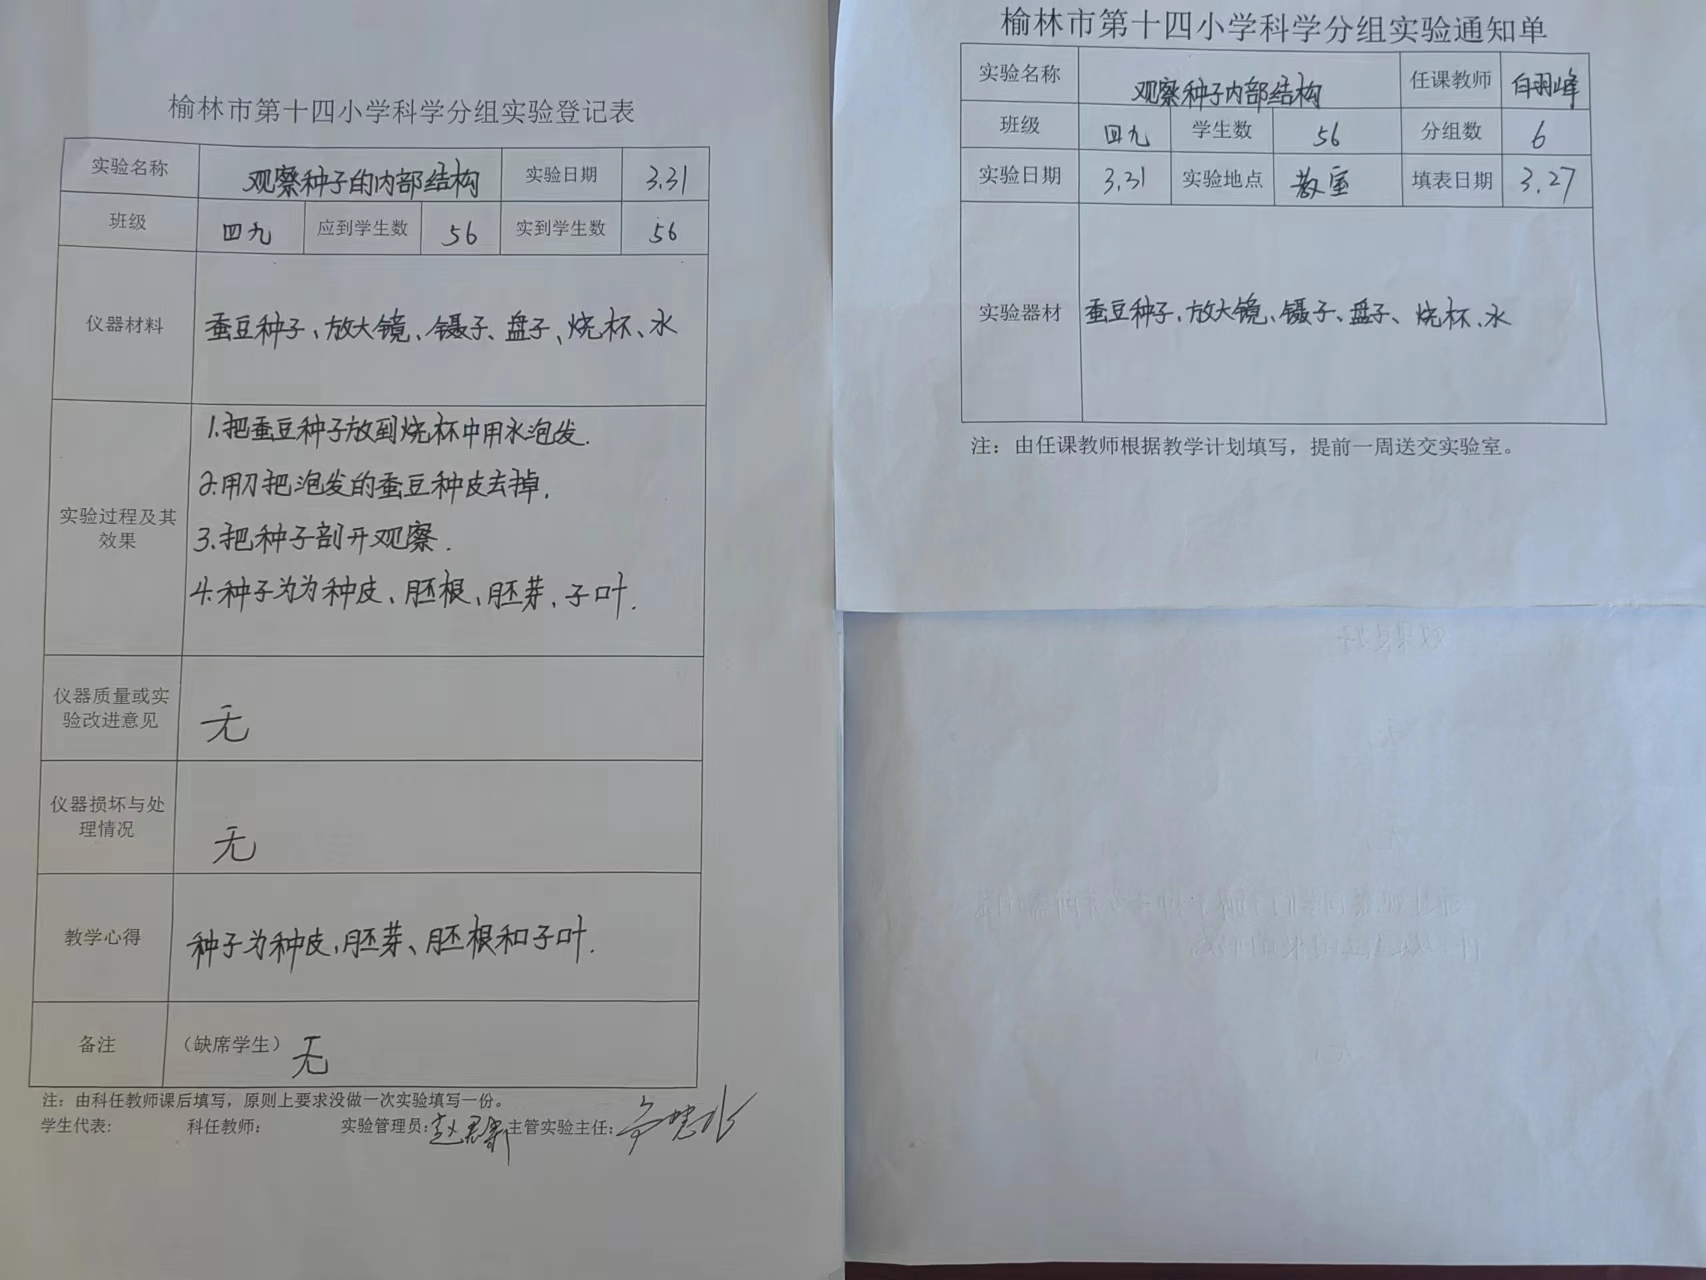 榆林市第十四小学科学分组实验登记表
实验名称 观察种子的内部结构 实验日期 3.31
班级 四九 应到学生数 56 实到学生数 56
仪器材料 蚕豆种子、放大镜、镊子、盘子、烧杯、水
1.把蚕豆种子放到烧杯中用水泡发.
2.用刀把泡发的蚕豆种皮去掉.
实验过程及其
效果
3.把种子剖开观察.
4.种子为为种皮、胚根、胚芽、子叶.
仪器质量或实
验改进意见
无
仪器损坏与处
理情况
无
教学心得 种子为种皮,胚芽、胚根和子叶.
备注 (缺席学生) 无
注：由科任教师课后填写，原则上要求没做一次实验填写一份。
学生代表: 科任教师: 实验管理员: 主管实验主任:
榆林市第十四小学科学分组实验通知单
实验名称 观察种子内部结构 任课教师 白羽峰
班级 四九 学生数 56 分组数 6
实验日期 3.31 实验地点 教室 填表日期 3.27
实验器材 蚕豆种子、放大镜、镊子、盘子、烧杯、水
注：由任课教师根据教学计划填写，提前一周送交实验室。